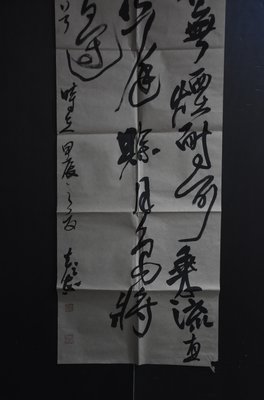 無煙耐可乘流直
庭賒月色將
邊
時在甲辰之